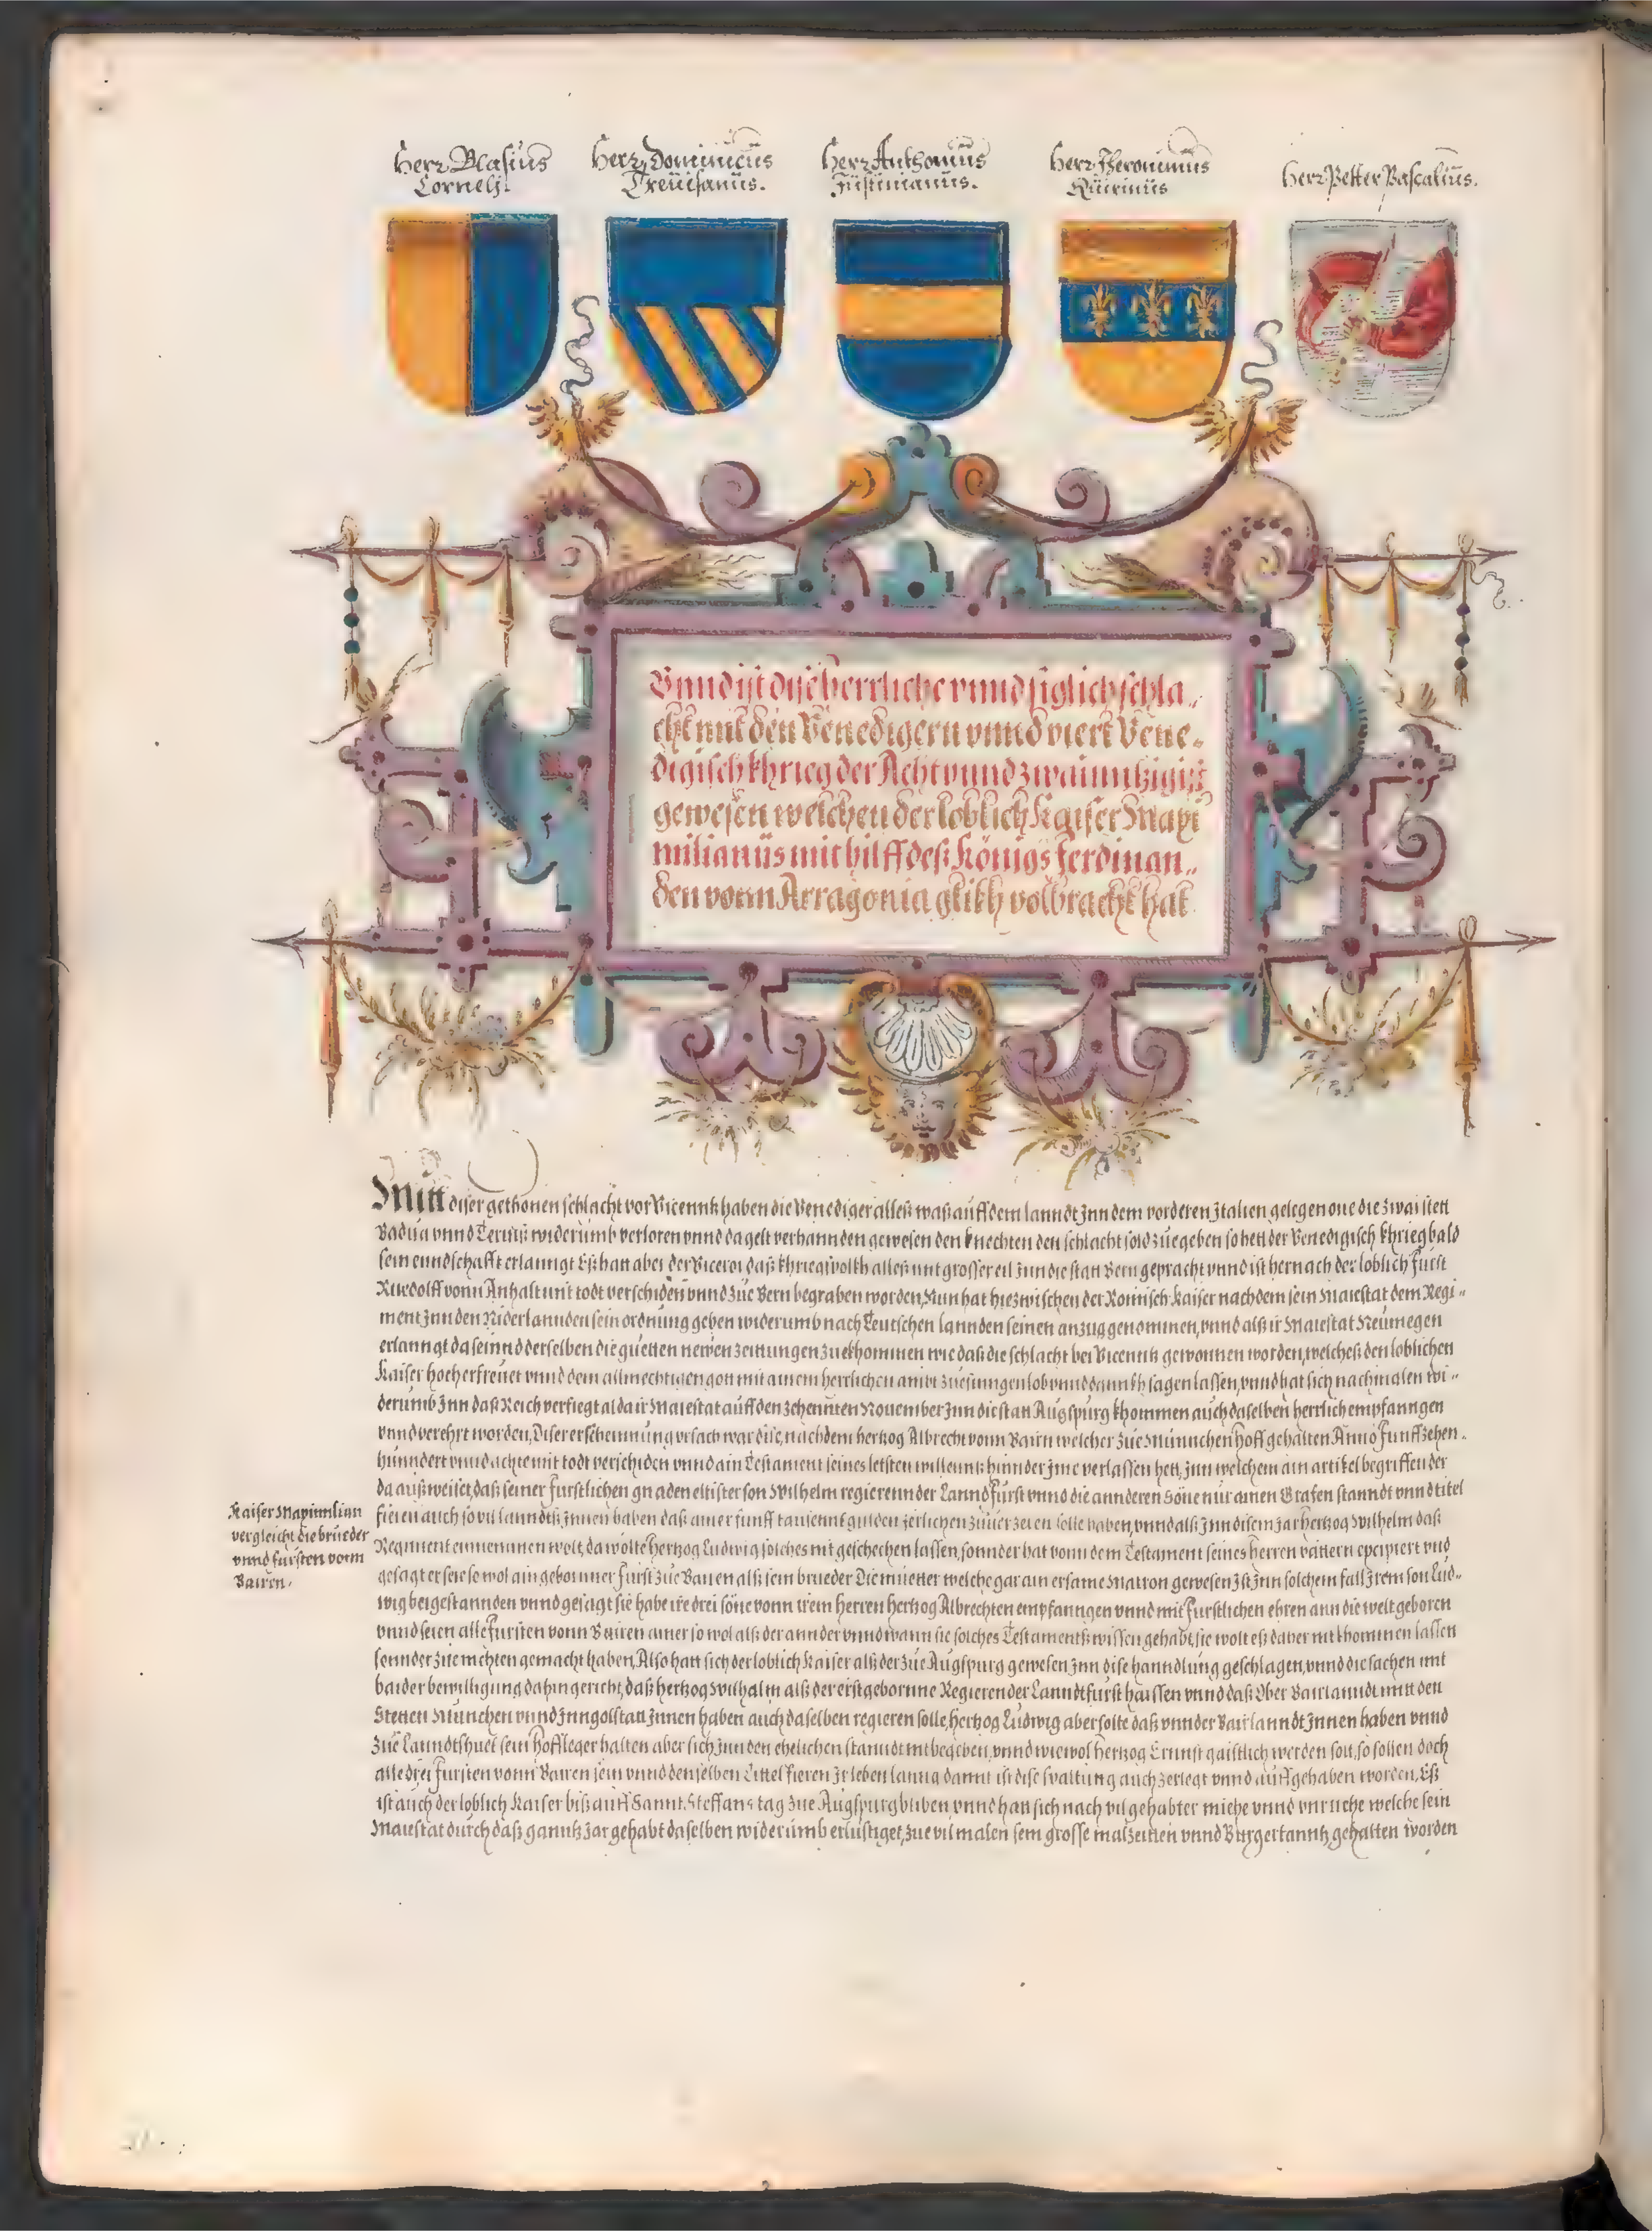 Herr Blasius
Cornelj.
Herr Dominicus
Treuisanus.
Herr Anthonius
Justinianus.
Herr Jheronimus
Quirinus
Herr Petter Pascalius.
Vnnd ist dise herrliche vnnd siglich schla„
cht mit den Venedigern vnnd viert Vene„
digisch khrieg der Acht vnnd zwainntzigist
gewesen welchen der loblich Kaiser Maxi
milianus mit hilff deß Königs Ferdinan„
den vonn Arragonia glikh volbracht hat
Mitt diser gethonen schlacht vor Vicenntz haben die Venediger alleß waß auff dem lanndt Jnn dem vorderen Jtalien gelegen one die zwai stett
Badua vnnd Teruiß widerumb verloren vnnd da gelt verhannden gewesen den knechten den schlacht sold zue geben so hett der Venedigisch khrieg bald
sein enndschafft erlanngt Eß hatt aber der Viceroi daß khriegsvolkh alleß mit grosser eil Jnn die statt Bern gepracht vnnd ist hernach der loblich Fürst
Ruedolff vonn Anhalt mit todt verschiden vnnd zue Bern begraben worden, Nun hat hiezwischen der Römisch Kaiser nach dem sein Maiestat dem Regi„
ment Jnn den Niderlannden sein ordnung geben widerumb nach Teutschen lannden seinen anzug genommen, vnnd alß ir Maiestat Neumegen
erlanngt da seinnd derselben die guetten newen zeittungen zuekhommen wie daß die schlacht bei Vicenntz gewonnen worden, welcheß den loblichen
Kaiser hoch erfreuet vnnd dem allmechtigen gott mit ainem herrlichen ambt zue singen lob vnnd dannkh sagen lassen, vnnd hat sich nachmalen wi„
derumb Jnn daß Reich verfiegt alda ir Maiestat auff den zehennten Nouember Jnn die statt Augspurg khommen auch daselben herrlich empfanngen
vnnd verehrt worden, Diser erscheinnung vrsach war dise, nachdem hertzog Albrecht vonn Bairn welcher zue Münnchen hoff gehalten Anno Funffzehen„
hunndert vnnd achte mit todt verschiden vnnd ain Testament seines letsten willenns hinnder jme verlassen hett, Jnn welchem ain artikel begriffen der
da außweiset, daß seiner furstlichen gnaden eltister son Wilhelm regierennder Lannd Fürst vnnd die annderen Söne nur ainen Grafen standt vnnd titel
fieren auch so vil lanndtß Jnnen haben daß ainer funff tausennt gulden jerlichen zuuerzeren solle haben, vnnd alß Jnn disem jar hertzog Wilhelm daß
Kaiser Maximilian
vergleicht die brueder
vnnd fursten vonn
Bairen.
Regiment einnemmen wolt, da wolte hertzog Ludwig solches nit geschechen lassen, sonnder hat vonn dem Testament seines herren vattern excipiert vnd
gesagt er seie so wol ain geborner Fürst zue Bairen alß sein brueder Die muetter welche gar ain ersame Matron gewesen Jst Jnn solchem fall Jrem son Lud„
wig beigestannden vnnd gesagt sie habe ire drei söne vonn irem herren hertzog Albrechten empfanngen vnnd mit Furstlichen ehren ann die welt geboren
vnnd seien alle Fürsten vonn Bairen ainer so wol alß der annder vnnd wann sie solches Testamentß wissen gehabt, sie wolt eß daher nit khommen lassen
sonnder zue nichten gemacht haben, Also hatt sich der loblich Kaiser alß der zue Augspurg gewesen Jnn dise hanndlung geschlagen, vnnd die sachen mit
baider bewilligung dahin gericht, daß hertzog Wilhalm alß der erstgebornne Regierender Lanndtfürst haissen vnnd daß Ober Bairlanndt mitt den
Stetten München vnnd Jnngolstatt Jnnen haben auch daselben regieren solle, hertzog Ludwig aber solte daß vnnder Bairlanndt Jnnen haben vnnd
zue Lanndtshuet sein hoffleger halten aber sich Jnn den ehelichen stanndt nit begeben, vnnd wiewol hertzog Ernnst gaistlich werden soll, so sollen doch
alle drei Fürsten vonn Bairen sein vnnd denselben Tittel fieren Jr leben lanng damit ist dise spaltung auch zerlegt vnnd auffgehaben worden, Eß
ist auch der loblich Kaiser biß auff Sannt Steffans tag zue Augspurg bliben vnnd hatt sich nach vil gehabter miehe vnnd vnrueche welche sein
Maiestat durch daß ganntz Jar gehabt daselben widerumb erlustiget, zue vil malen sein grosse malzeitten vnnd Burgertanntz gehalten worden